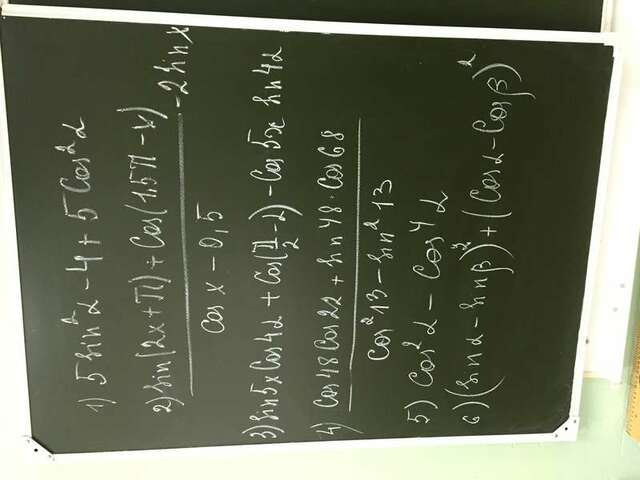 1) 5 sin²α - 4 + 5 Cos²α
2) (sin(2x + π) + Cos(1,5π - x)) / (Cos x - 0,5) - 2 sin x
3) sin 5x Cos 4α + Cos(π/2 - α) - Cos 5x sin 4α
4) (Cos 48 Cos 22 + sin 48 · Cos 68) / (Cos² 13 - sin² 13)
5) Cos²α - Cos⁴α
6) (sin α - sin β)² + (Cos α - Cos β)²